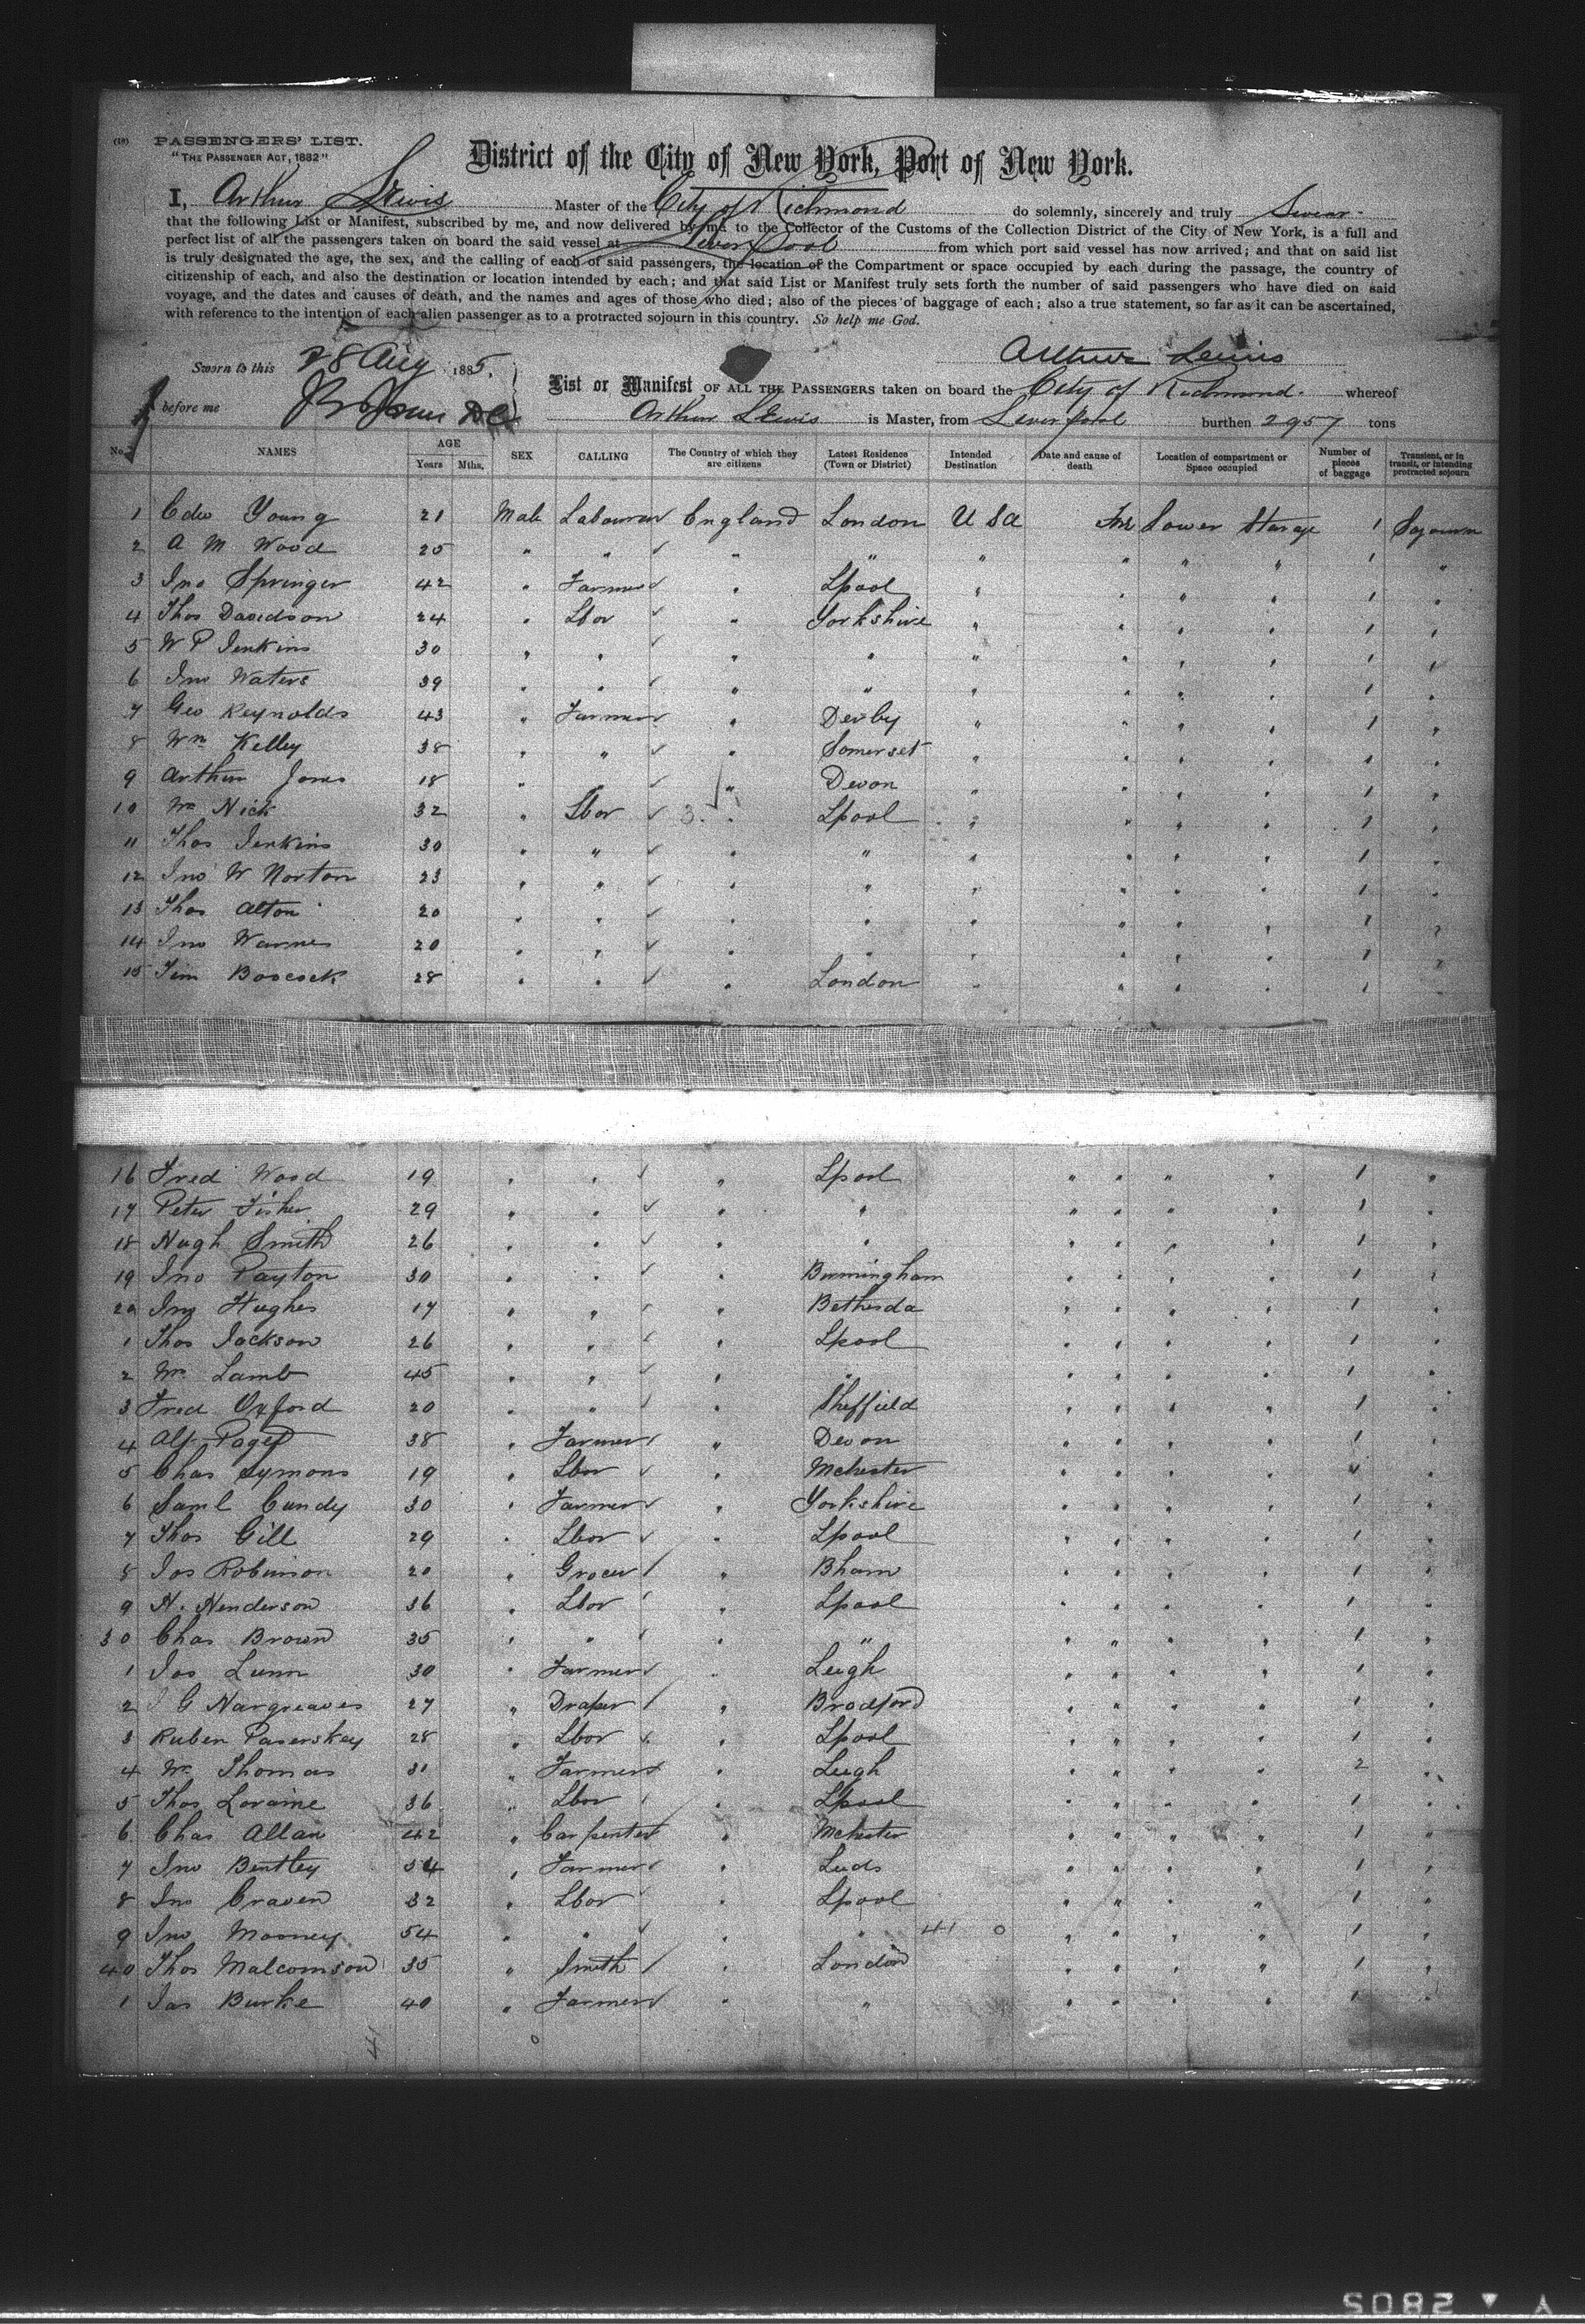 (18) PASSENGERS' LIST.
"THE PASSENGER ACT, 1882"
District of the City of New York, Port of New York.
I, Arthur Lewis Master of the City of Richmond do solemnly, sincerely and truly Swear
that the following List or Manifest, subscribed by me, and now delivered by me to the Collector of the Customs of the Collection District of the City of New York, is a full and
perfect list of all the passengers taken on board the said vessel at Liverpool from which port said vessel has now arrived; and that on said list
is truly designated the age, the sex, and the calling of each of said passengers, the location of the Compartment or space occupied by each during the passage, the country of
citizenship of each, and also the destination or location intended by each; and that said List or Manifest truly sets forth the number of said passengers who have died on said
voyage, and the dates and causes of death, and the names and ages of those who died; also of the pieces of baggage of each; also a true statement, so far as it can be ascertained,
with reference to the intention of each alien passenger as to a protracted sojourn in this country. So help me God.
Arthur Lewis
Sworn to this 28 Aug 1885,
before me
List or Manifest OF ALL THE PASSENGERS taken on board the City of Richmond whereof
Arthur Lewis is Master, from Liverpool burthen 2957 tons
No. NAMES AGE Years Mths. SEX CALLING The Country of which they are citizens Latest Residence (Town or District) Intended Destination Date and cause of death Location of compartment or Space occupied Number of pieces of baggage Transient, or in transit, or intending protracted sojourn
1 Edw Young 21 Male Labourer England London U S A Lower Sterage 1 Sojourn
2 A M Wood 25 " " " " " " " " 1 "
3 Jno Springer 42 " Farmer " Lpool " " " " 1 "
4 Thos Davidson 24 " Lbor " Yorkshire " " " " 1 "
5 W P Jenkins 30 " " " " " " " " 1 "
6 Jno Waters 39 " " " " " " " " 1 "
7 Geo Reynolds 43 " Farmer " Derby " " " " 1 "
8 Wm Kelley 38 " " " Somerset " " " " 1 "
9 Arthur Jones 18 " " " Devon " " " " 1 "
10 Wm Nick 32 " Lbor " Lpool " " " " 1 "
11 Thos Jenkins 30 " " " " " " " " 1 "
12 Jno W Norton 23 " " " " " " " " 1 "
13 Thos Alton 20 " " " " " " " " 1 "
14 Jno Warnes 20 " " " " " " " 1 "
15 Jim Boocock 28 " " " London " " " " 1
16 Fred Wood 19 " " " Lpool " " " " 1 "
17 Peter Fisher 29 " " " " " " " " 1 "
18 Hugh Smith 26 " " " " " " " " 1 "
19 Jno Payton 30 " " " Birmingham " " " " 1 "
20 Jno Hughes 17 " " " Bethesda " " " " 1 "
1 Thos Jackson 26 " " " Lpool " " " " 1 "
2 Wm Lamb 45 " " " " " " " " 1 "
3 Fred Oxford 20 " " " Sheffield " " " " 1 "
4 Alf Paget 38 " Farmer " Devon " " " " 1 "
5 Chas Symons 19 " Lbor " Mchester " " " " "
6 Saml Cundy 30 " Farmer " Yorkshire " " " " 1 "
7 Thos Gill 29 " Lbor " Lpool " " " " 1 "
8 Jos Robinson 20 " Grocer " Bham " " " " 1 "
9 H. Henderson 36 " Lbor " Lpool " " " " 1 "
30 Chas Brown 35 " " " " " " " " 1 "
1 Jos Lunn 30 " Farmer " Leigh " " " " 1 "
2 J G Hargreaves 27 " Draper " Bradford " " " " 1 "
3 Ruben Paserskey 28 " Lbor " Lpool " " " " 1 "
4 Wm Thomas 31 " Farmer " Leigh " " " " 2 "
5 Thos Loraine 36 " Lbor " Lpool " " " " 1 "
6 Chas Allan 42 " Carpenter " Mchester " " " " 1 "
7 Jno Bentley 54 " Farmer " Leeds " " " " 1 "
8 Jno Craven 32 " Lbor " Lpool " " " " 1 "
9 Jno Mooney 54 " " " " 41 0 " " " " 1 "
40 Thos Malcomson 35 " Smith " London " " " " 1 "
1 Jas Burke 40 " Farmer " " " " " " 1 "
41 0
5082